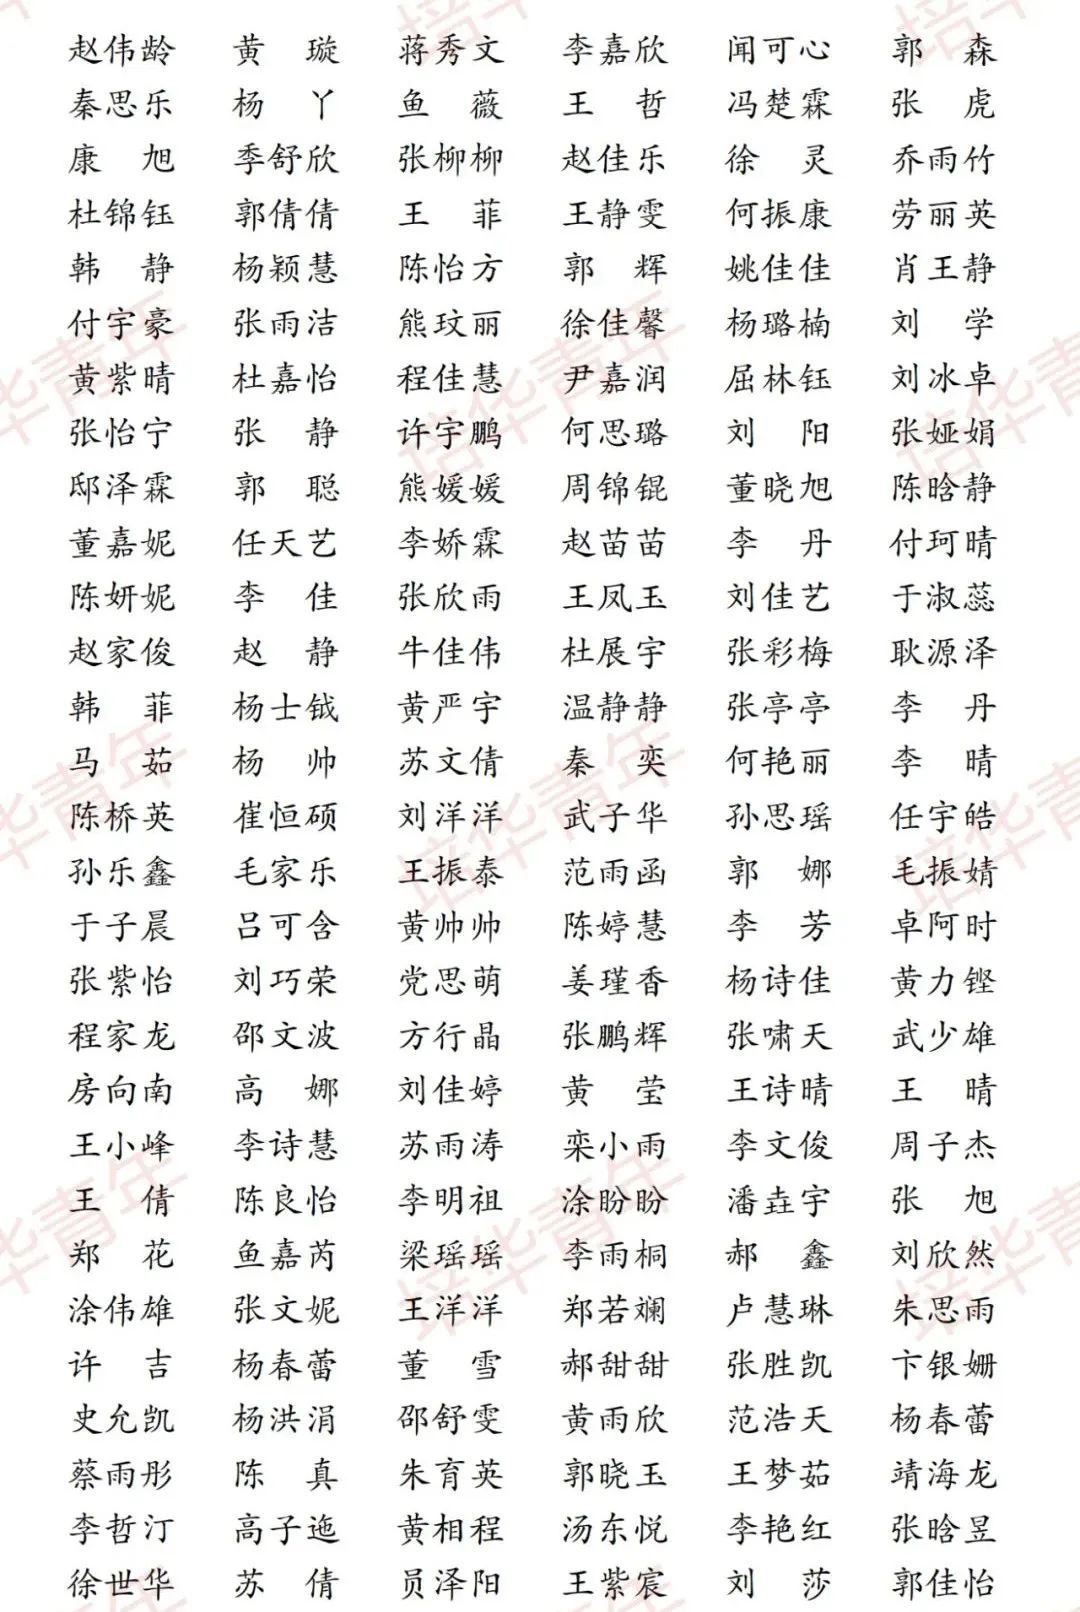 赵伟龄 黄 璇 蒋秀文 李嘉欣 闻可心 郭 森
秦思乐 杨 丫 鱼 薇 王 哲 冯楚霖 张 虎
康 旭 季舒欣 张柳柳 赵佳乐 徐 灵 乔雨竹
杜锦钰 郭倩倩 王 菲 王静雯 何振康 劳丽英
韩 静 杨颖慧 陈怡方 郭 辉 姚佳佳 肖王静
付宇豪 张雨洁 熊玟丽 徐佳馨 杨璐楠 刘 学
黄紫晴 杜嘉怡 程佳慧 尹嘉润 屈林钰 刘冰卓
张怡宁 张 静 许宇鹏 何思璐 刘 阳 张娅娟
邸泽霖 郭 聪 熊媛媛 周锦锟 董晓旭 陈晗静
董嘉妮 任天艺 李娇霖 赵苗苗 李 丹 付珂晴
陈妍妮 李 佳 张欣雨 王凤玉 刘佳艺 于淑蕊
赵家俊 赵 静 牛佳伟 杜展宇 张彩梅 耿源泽
韩 菲 杨士钺 黄严宇 温静静 张亭亭 李 丹
马 茹 杨 帅 苏文倩 秦 奕 何艳丽 李 晴
陈桥英 崔恒硕 刘洋洋 武子华 孙思瑶 任宇皓
孙乐鑫 毛家乐 王振泰 范雨函 郭 娜 毛振婧
于子晨 吕可含 黄帅帅 陈婷慧 李 芳 卓阿时
张紫怡 刘巧荣 党思萌 姜瑾香 杨诗佳 黄力铿
程家龙 邵文波 方行晶 张鹏辉 张啸天 武少雄
房向南 高 娜 刘佳婷 黄 莹 王诗晴 王 晴
王小峰 李诗慧 苏雨涛 栾小雨 李文俊 周子杰
王 倩 陈良怡 李明祖 涂盼盼 潘垚宇 张 旭
郑 花 鱼嘉芮 梁瑶瑶 李雨桐 郝 鑫 刘欣然
涂伟雄 张文妮 王洋洋 郑若斓 卢慧琳 朱思雨
许 吉 杨春蕾 董 雪 郝甜甜 张胜凯 卞银姗
史允凯 杨洪涓 邵舒雯 黄雨欣 范浩天 杨春蕾
蔡雨彤 陈 真 朱育英 郭晓玉 王梦茹 靖海龙
李哲汀 高子迤 黄相程 汤东悦 李艳红 张晗昱
徐世华 苏 倩 员泽阳 王紫宸 刘 莎 郭佳怡
培华青年